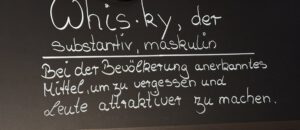 Whis·ky, der
substantiv, maskulin
Bei der Bevölkerung anerkanntes
Mittel, um zu vergessen und
Leute attraktiver zu machen.